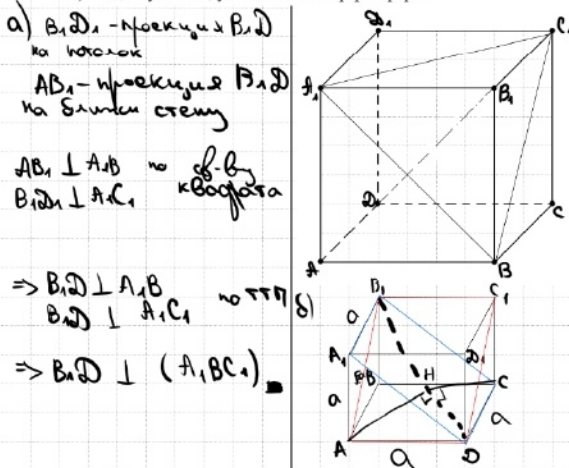 а) B₁D₁ - проекция B₁D
на потолок
AB₁ - проекция B₁D
на ближн стену
AB₁ ⊥ A₁B по св-ву
B₁D₁ ⊥ A₁C₁ квадрата
=> B₁D ⊥ A₁B по ТТП
B₁D ⊥ A₁C₁
=> B₁D ⊥ (A₁BC₁)
D₁
C₁
A₁
B₁
D
C
A
B
б)
B₁
C₁
a
A₁
D₁
B
H
C
a
a
A
a
D